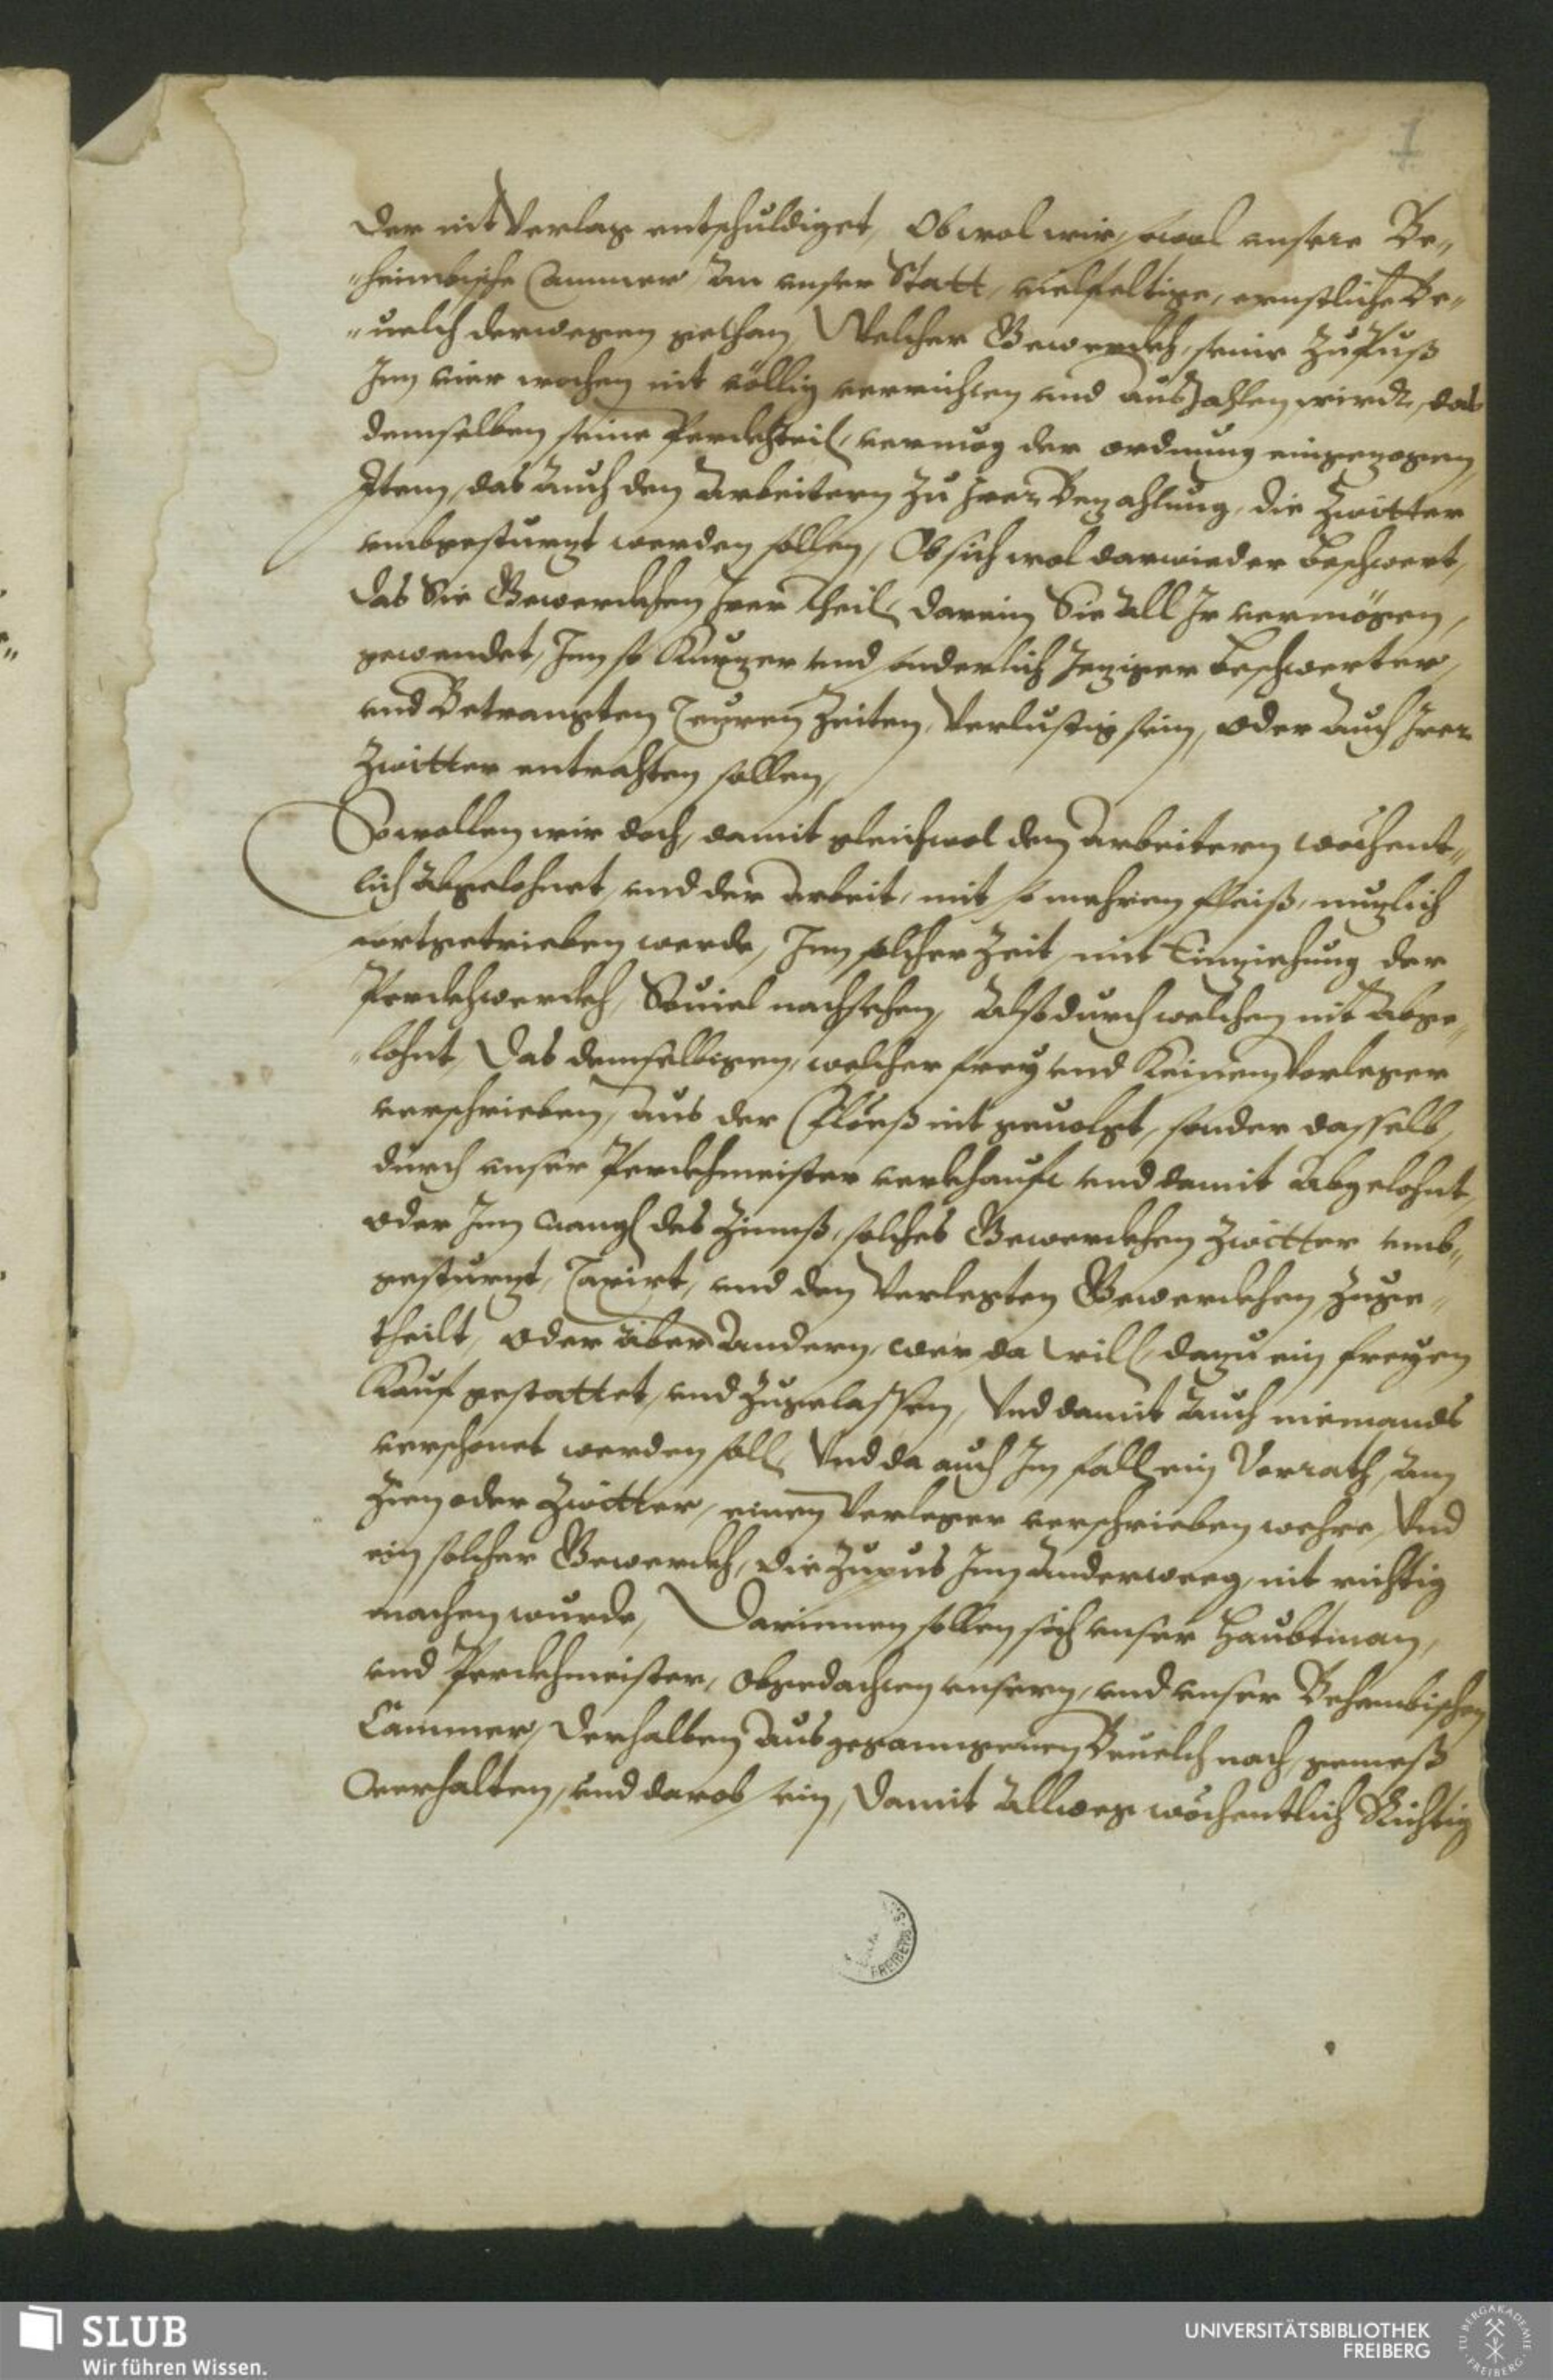 1
der nit Verlag entschuldiget, Obwol wir, sowol unsere Be„
„heimbische Cammer an unser Statt, vielfeltige, ernstliche Be„
„uelch derwegen gethan, Welcher Gewerckh, seine Zupuß
Inn vier wochen nit völlig verrichten und auszahlen wirdt, das
demselben seine Perckhteil, vermög der ordnung eingezogen,
Item, das auch den Arbeitern zu Irer Bezahlung, die Zwitter
umbgesturzt werden sollen, Ob sich wol darwieder beschwert,
das Sie Gewerckhen Irer Theil, darein Sie all Ir vermögen,
gewendet, Inn so Kurzer und sonderlich Jeziger beschwerter,
und Betrangten Teuren Zeiten, Verlustig sein, oder auch Irer
Zwitter entrahten sollen,
So wollen wir doch, damit gleichwol den Arbeitern wöchent„
lich abgelohnet, und der Arbeit, mit so mehrern fleiß, nuzlich
fortgetrieben werde, Inn solcher Zeit, mit Einziehung der
Perckhwerckh, Souiel nachsehen, Also durch welchen nit Abge„
„lohnt, Das demselbigen, welcher frey und Keinem Verleger
verschrieben, aus der Flöeß nit geuolgt, sonder dasselb,
durch unser Perckhmeister verkhauft und damit Abgelohnt,
oder Inn mangl des Zinnß, solches Gewerckhen Zwitter umb„
gesturzt, Taxirt, und den Verlegten Gewerckhen zuge„
theilt, oder aber Andern, wer da will, dazu ein freyen
Kauf gestattet, und zugelassen, Und damit auch niemands
verschonet werden soll, Und da auch Im fall ein Vorrath, am
Zien oder Zwitter, einem Verleger verschrieben wehre, Und
ein solcher Gewerckh, die Zupus Inn anderweeg, nit richtig
machen wurde, Darinnen sollen sich unser Haubtman,
und Perckhmeister, obgedachten unsern, und unser Behembischen
Cammer, derhalben ausgegangenen Beuelch nach, gemeß
verhalten, und darob sein, damit allweg wöchentlich Richtig
FREIBERG
SLUB
Wir führen Wissen.
UNIVERSITÄTSBIBLIOTHEK
FREIBERG
TU BERGAKADEMIE
FREIBERG